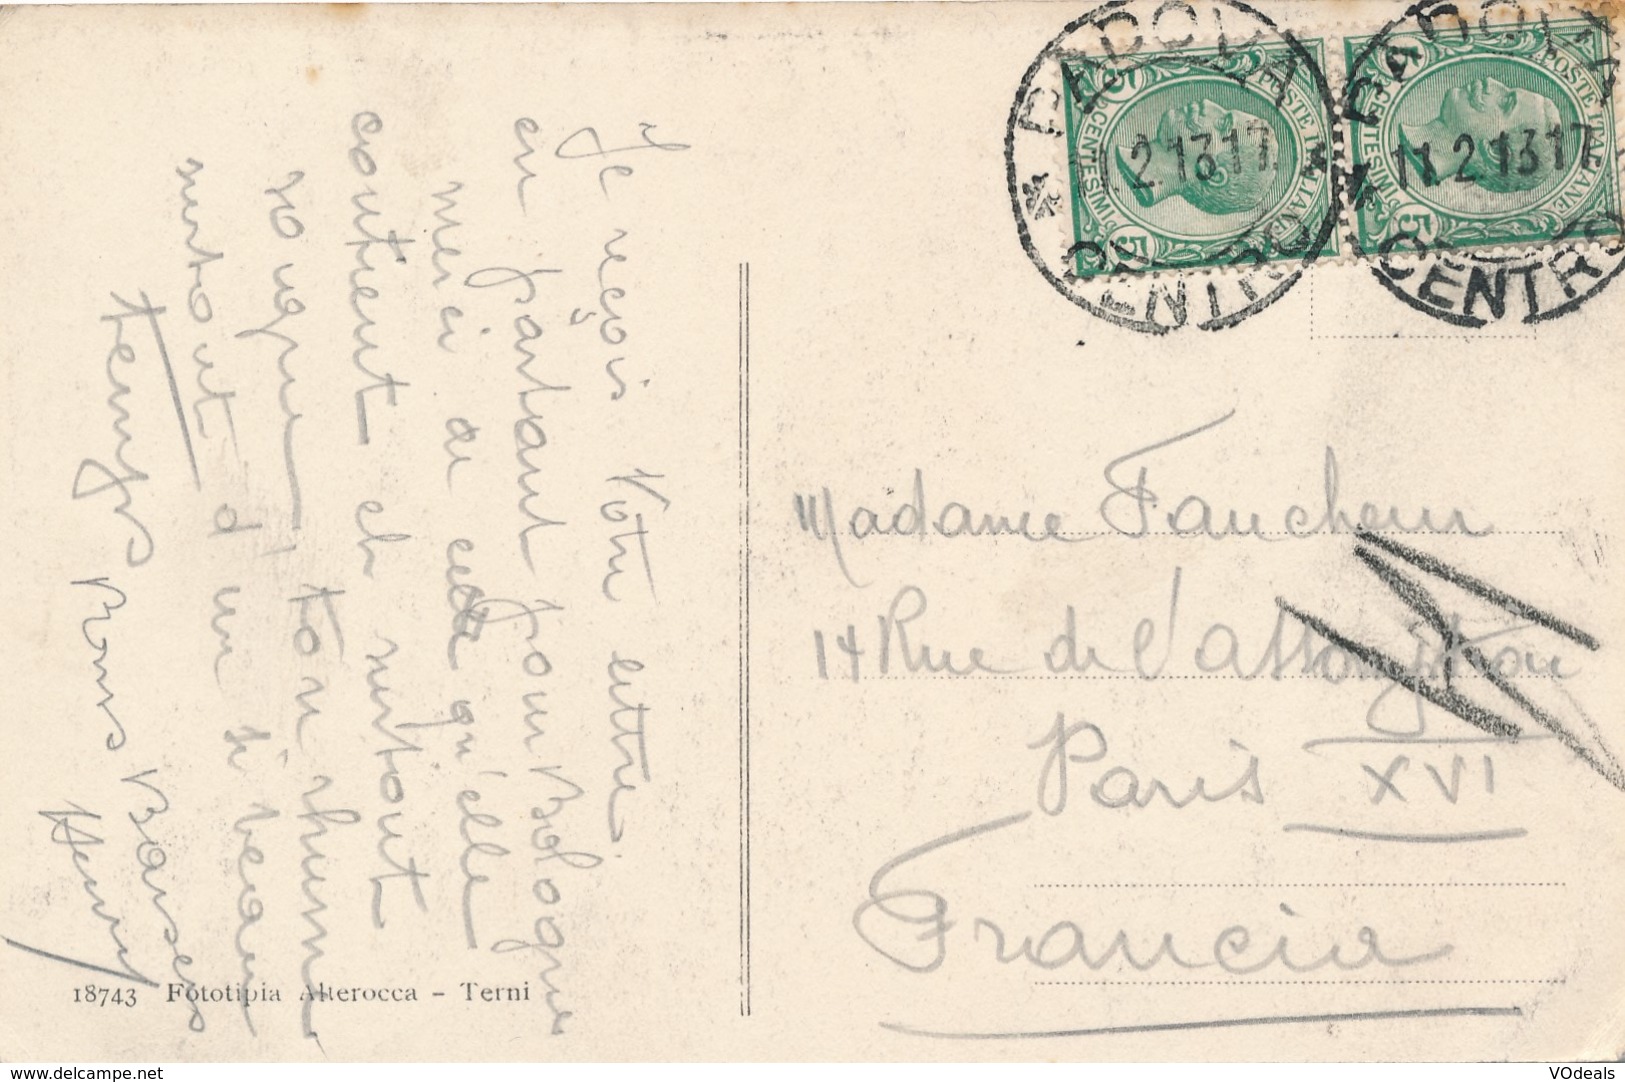 Je reçois Votre lettre
en partant pour Bologne
merci de celle qu'elle
contient et surtout
soigne ton rhume
surtout d'un si beau
temps Bons Baisers
Henry
18743 Fototipia Alterocca - Terni
PADOVA
CENTRO
11.2 13 17
POSTE ITALIANE
CENTESIMI 5
PADOVA
CENTRO
11.2 13 17
POSTE ITALIANE
CENTESIMI 5
Madame Faucheur
14 Rue de l'assomption
Paris XVI
Francia
www.delcampe.net
VOdeals